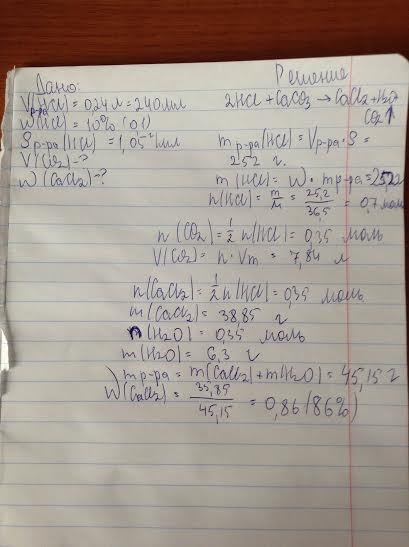 Дано:
Vр-ра(HCl) = 0,24 л = 240 мл
W(HCl) = 10% (0,1)
Sр-ра(HCl) = 1,05 г/мл
V(CO2) - ?
W(CaCl2) - ?
Решение
2HCl + CaCO3 → CaCl2 + H2O
CO2↑
mр-ра(HCl) = Vр-ра · S =
252 г.
m(HCl) = W · mр-ра = 25,2 г
n(HCl) = m/M = 25,2/36,5 = 0,7 моль
n(CO2) = 1/2 n(HCl) = 0,35 моль
V(CO2) = n · Vm = 7,84 л
n(CaCl2) = 1/2 n(HCl) = 0,35 моль
m(CaCl2) = 38,85 г
n(H2O) = 0,35 моль
m(H2O) = 6,3 г
mр-ра = m(CaCl2) + m(H2O) = 45,15 г
W(CaCl2) = 38,85/45,15 = 0,86 (86%)